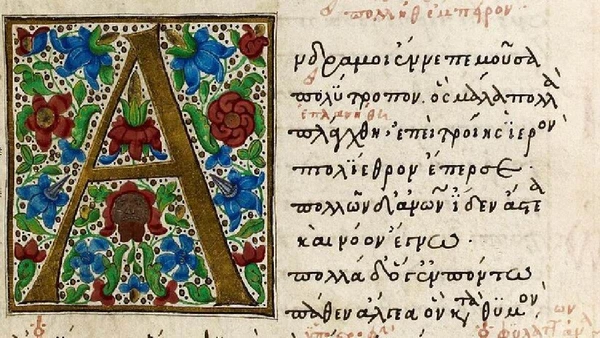 Ανδρα μοι ἔννεπε μοῦσα
πολύτροπον· ὃς μάλα πολλὰ
ἐπλανήθη
πλάγχθη· ἐπεὶ τροίης ἱερὸν
πτολίεθρον ἔπερσε·
πολλῶν δ' ἀνῶν ἴδεν ἄστεα
καὶ νόον ἔγνω·
πολλὰ δ' ὅγ' ἐν πόντω
πάθεν ἄλγεα ὃν κτὰ θυμόν·